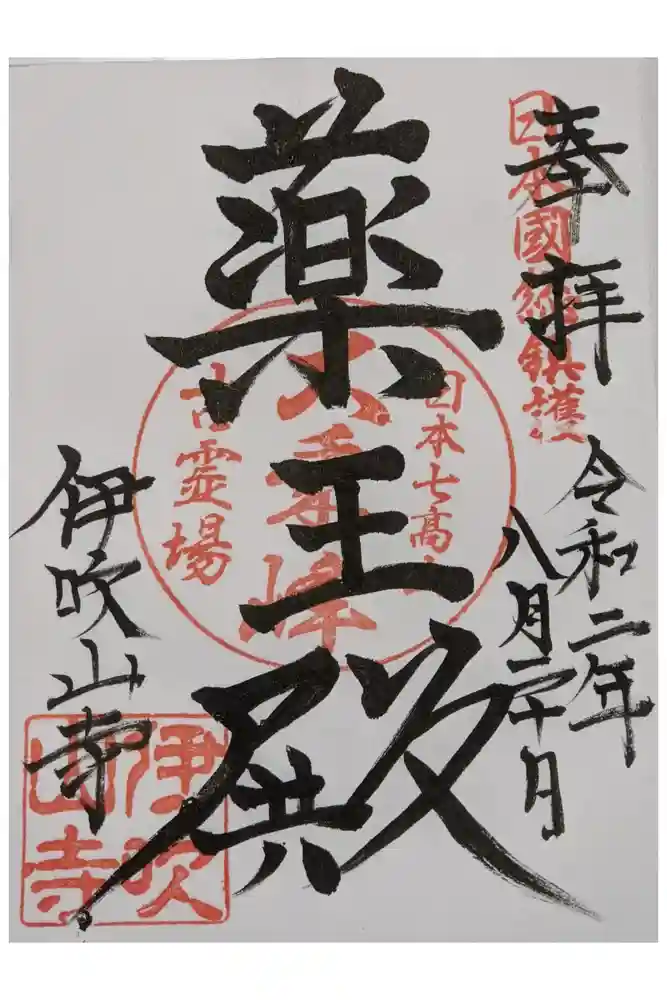 奉拝
日本國総鎮護
令和二年
八月二十日
薬王殿
日本七高山
大乗峰
古霊場
伊吹山寺
伊吹
山寺